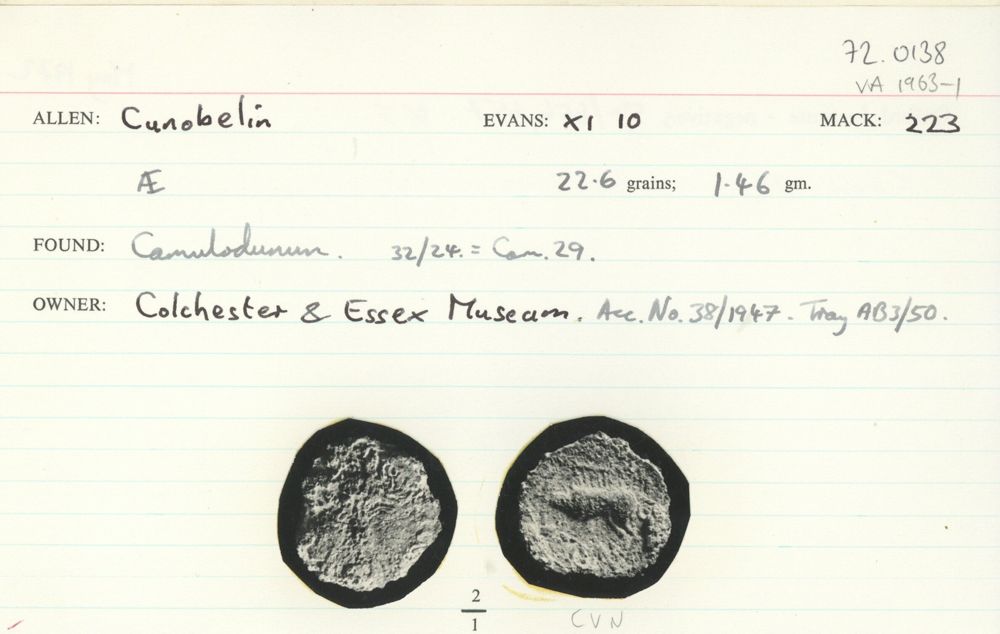 72.0138
VA 1963-1
ALLEN: Cunobelin EVANS: XI 10 MACK: 223
Æ 22.6 grains; 1.46 gm.
FOUND: Camulodunum. 32/24. = Cam. 29.
OWNER: Colchester & Essex Museum. Acc. No. 38/1947. Tray AB3/50.
2
1
CVN